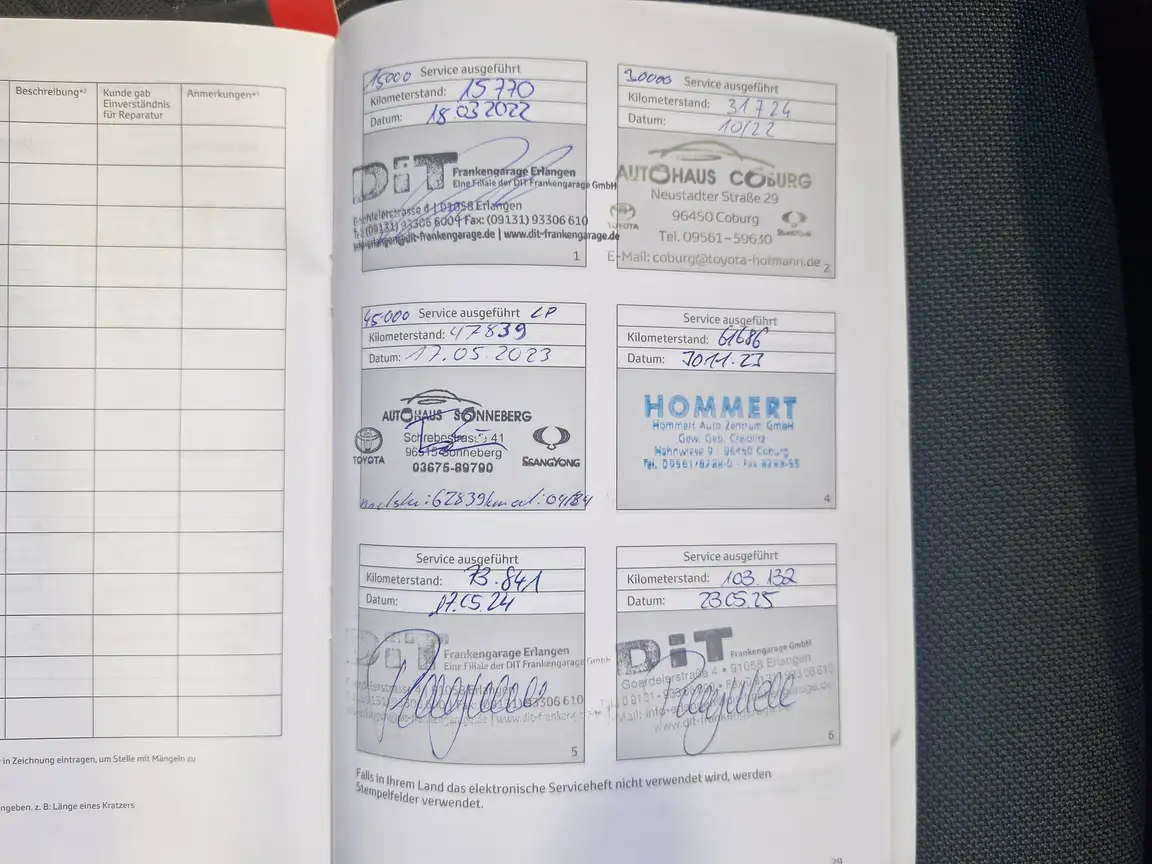 Beschreibung*²
Kunde gab
Einverständnis
für Reparatur
Anmerkungen*³
in Zeichnung eintragen, um Stelle mit Mängeln zu
ngeben. z. B: Länge eines Kratzers
15000 Service ausgeführt
Kilometerstand: 15 770
Datum: 18.03.2022
DiT Frankengarage Erlangen
Eine Filiale der DIT Frankengarage GmbH
4 | 91058 Erlangen
(09131) 93306 6004 Fax: (09131) 93306 610
@dit-frankengarage.de | www.dit-frankengarage.de
1
30000 Service ausgeführt
Kilometerstand: 31724
Datum: 10/22
AUTOHAUS COBURG
Neustadter Straße 29
96450 Coburg
TOYOTA
SSANGYONG
Tel. 09561-59630
E-Mail: coburg@toyota-hormann.de
2
45000 Service ausgeführt LP
Kilometerstand: 47839
Datum: 17.05.2023
AUTOHAUS SONNEBERG
Schrebestrasse 41
96515 Sonneberg
03675-89790
TOYOTA
SSANGYONG
62839km od: 04/24
Service ausgeführt
Kilometerstand: 61686
Datum: 30.11.23
HOMMERT
Hommert Auto Zentrum GmbH
Gew. Geb. Creidlitz
Hahnwiese 9 · 96450 Coburg
4
Service ausgeführt
Kilometerstand: 73.841
Datum: 17.05.24
DiT Frankengarage Erlangen
Eine Filiale der DIT Frankengarage GmbH
91058 Erlangen
93306 610
5
Service ausgeführt
Kilometerstand: 103.132
Datum: 23.05.25
DiT Frankengarage GmbH
Goerdelerstraße 4 • 91058 Erlangen
www.dit-frankengarage.de
6
Falls in Ihrem Land das elektronische Serviceheft nicht verwendet wird, werden
Stempelfelder verwendet.
29